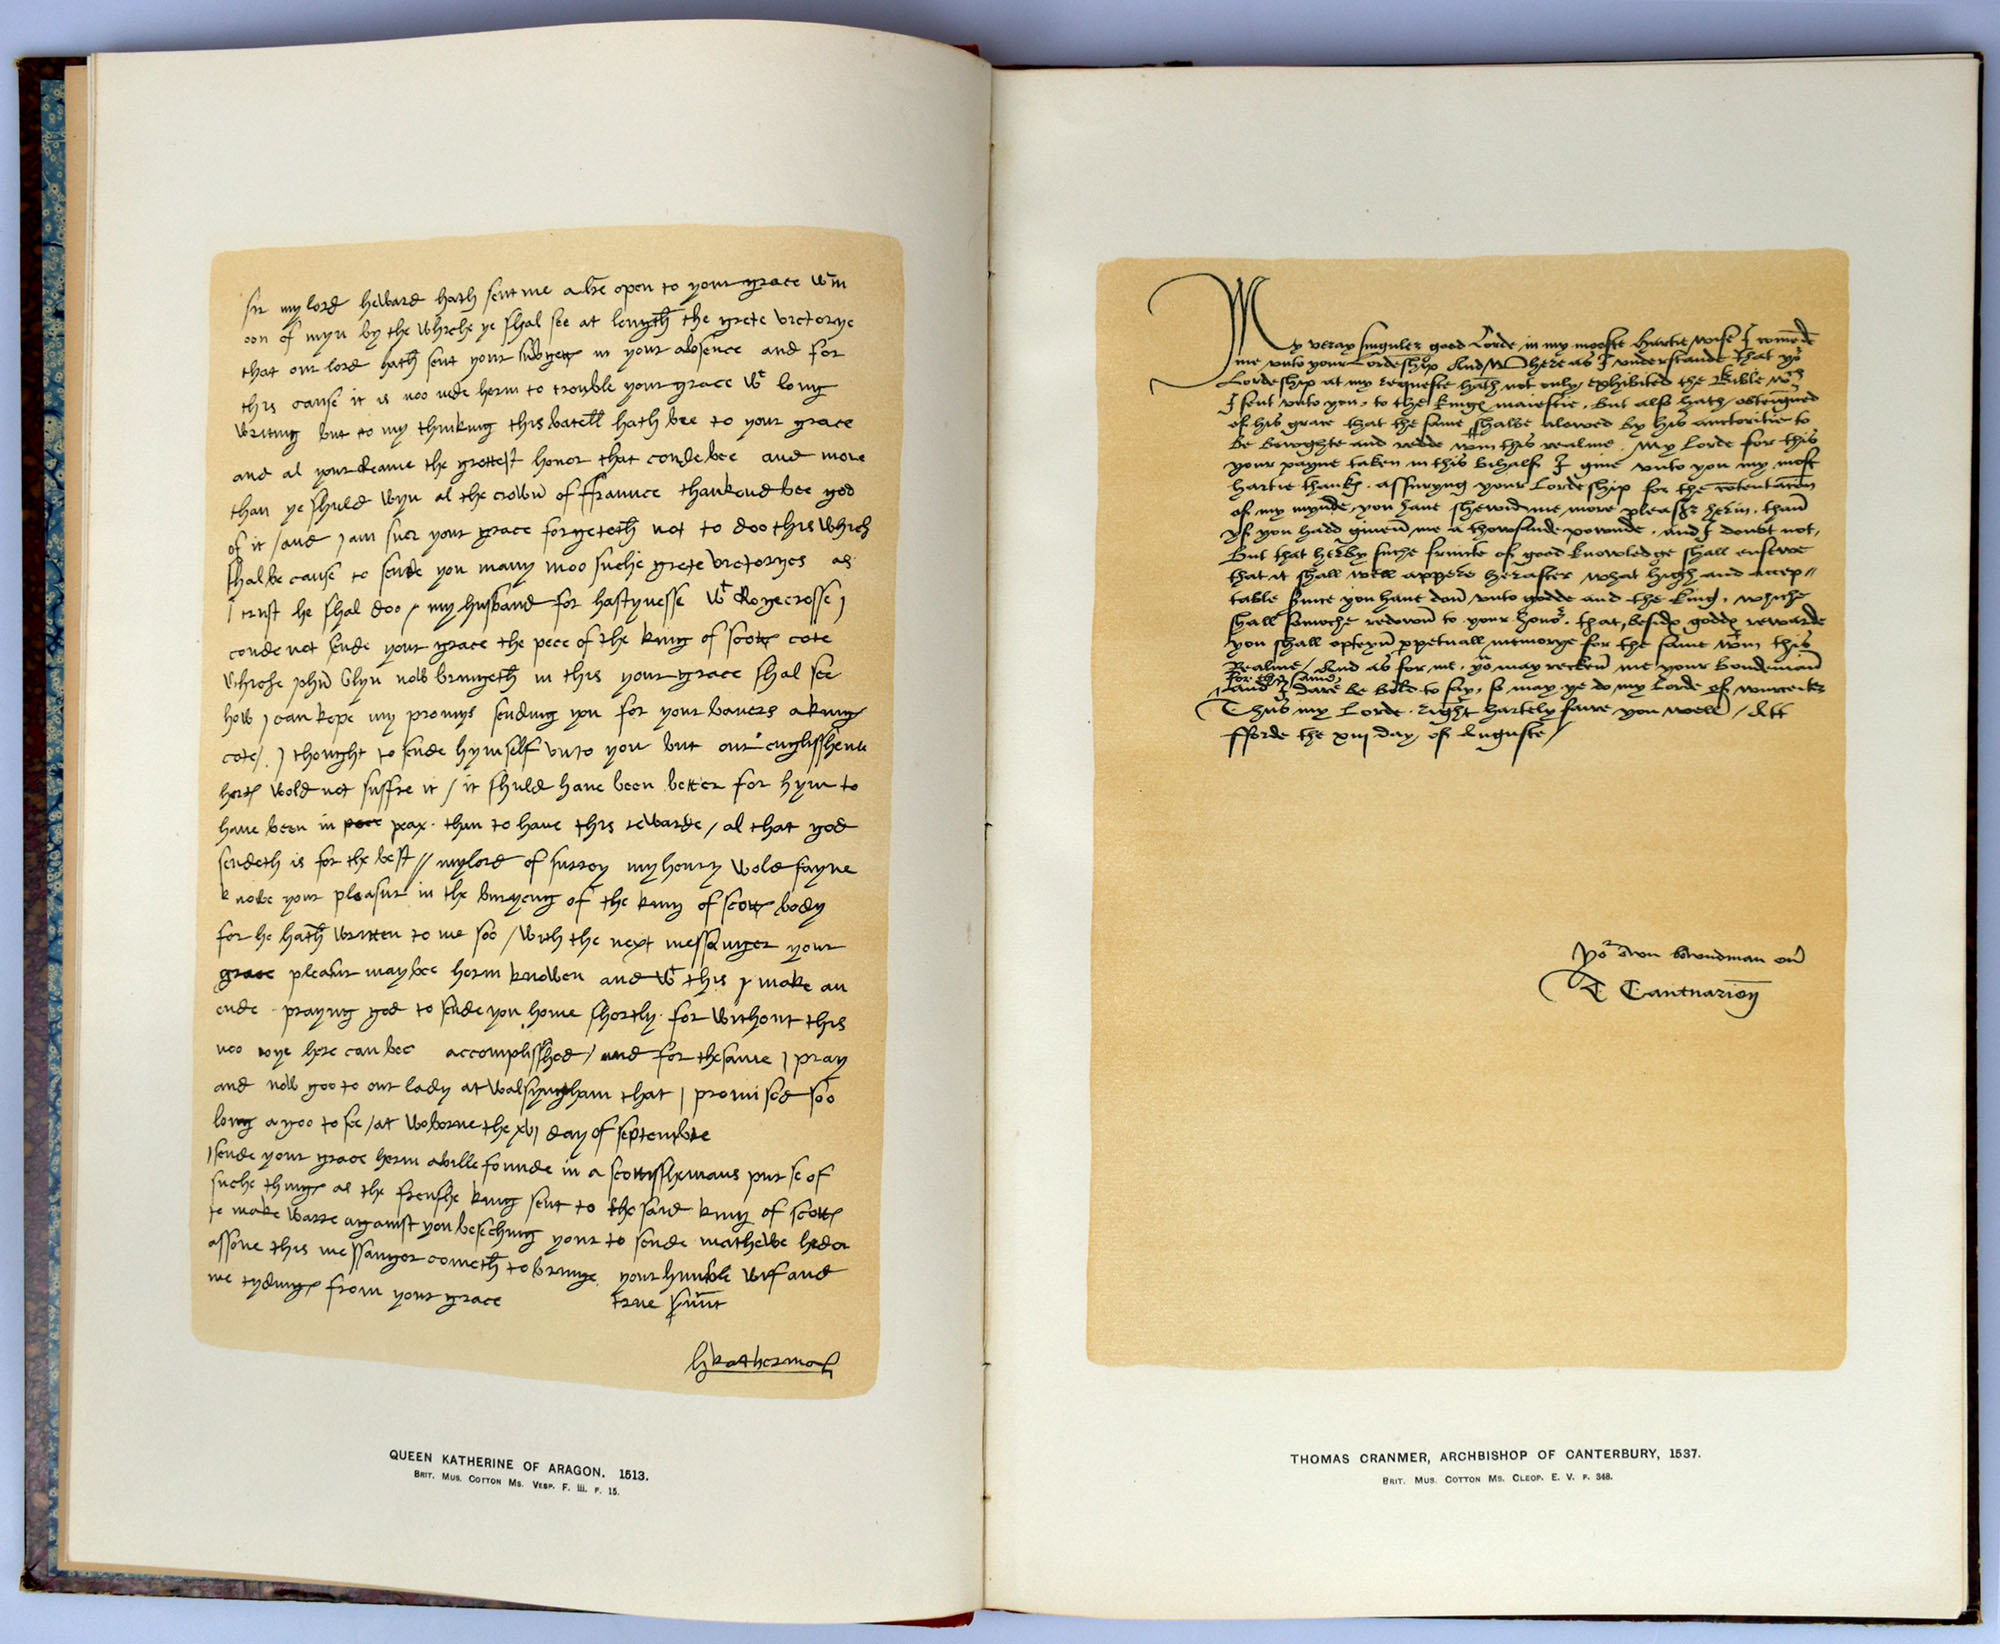 Sir my lord howard hath sent me a lre open to your grace wtin
oon of myn by the whiche ye shal see at length the grete victorye
that our lord hath sent your subgetts in your absence and for
this cause it is noo nede herin to trouble your grace wt long
writing but to my thinking this batell hath bee to your grace
and al your Reame the grettest honor that conde bee and more
than ye shuld wyn al the crown of ffraunce thankend bee god
of it / and I am suer your grace forgeteth not to doo this which
shal be cause to sende you many moo suche grete victoryes as
I trust he shal doo / my husband for hastynesse wt Rogecrosse I
conde not sende your grace the pece of the king of scotts cote
whiche John Glyn now bringeth in this your grace shal see
how I can kepe my promys sending you for your baners a kings
cote / I thought to sende hymself unto you but our englisshemens
herts wold not suffre it / it shuld have been better for hym to
have been in peax than to have this rewarde / al that god
sendeth is for the best // my lord of surrey my henry wold fayne
knowe your pleasur in the buryeng of the king of scotts body
for he hath written to me soo / with the next messanger your
grace pleasur may bee herin knowen and wt this I make an
ende praying god to sende you home shortly for without this
noo ioye here can bee accomplisshed / and for the same I pray
and now goo to our lady at walsyngham that I promised soo
long agoo to see / at woborne the xvj day of septembre
I sende your grace herin a bille founde in a scottisshemans purse of
suche things as the frenshe king sent to the said king of scotts
to make warre against you beseching your to sende mathewe heder
assone this messanger cometh to bringe
me tydings from your grace
your humble wif and
true sunt
Katherina
QUEEN KATHERINE OF ARAGON. 1513.
BRIT. MUS. COTTON MS. VESP. F. iii. F. 15.
My veray singuler good Lorde in my mooste hartie wise I comende
me unto your Lordeship And Where as I understande that yor
Lordeship at my requeste hath not only exhibited the Bible wch
I sent unto you, to the kings maiestie, But also hath obteigned
of his grace that the same shalbe alowed by his auctoritie to
be bowghte and redde wtin this realme. My Lorde for this
your payne taken in this bihalf I give unto you my most
hartie thanks. assuryng your Lordeship for the contentacion
of my mynde, you have shewid me more pleasr herin, than
yf you hadd given me a thowsande pownde. and I doubt not,
But that herby suche fruicte of good knowledge shall ensewe
that it shall well appere herafter what high and accep//
table svice you have don unto godde and the king, whiche
shall somoche redown to your honor. that, besids godds rewarde
you shall opteyn ppetuall memorye for the same wtin this
Realme / And as for me, you may recken me your bondeman
for the same,
and I dare be bold to say, so may ye do my Lorde of wurceter
Thus my Lorde. right hartely faire you well / Att
fforde the xiij day of Auguste /
Yor own bowndman ev
T Cantuarien
THOMAS CRANMER, ARCHBISHOP OF CANTERBURY, 1537.
BRIT. MUS. COTTON MS. CLEOP. E. V. F. 348.